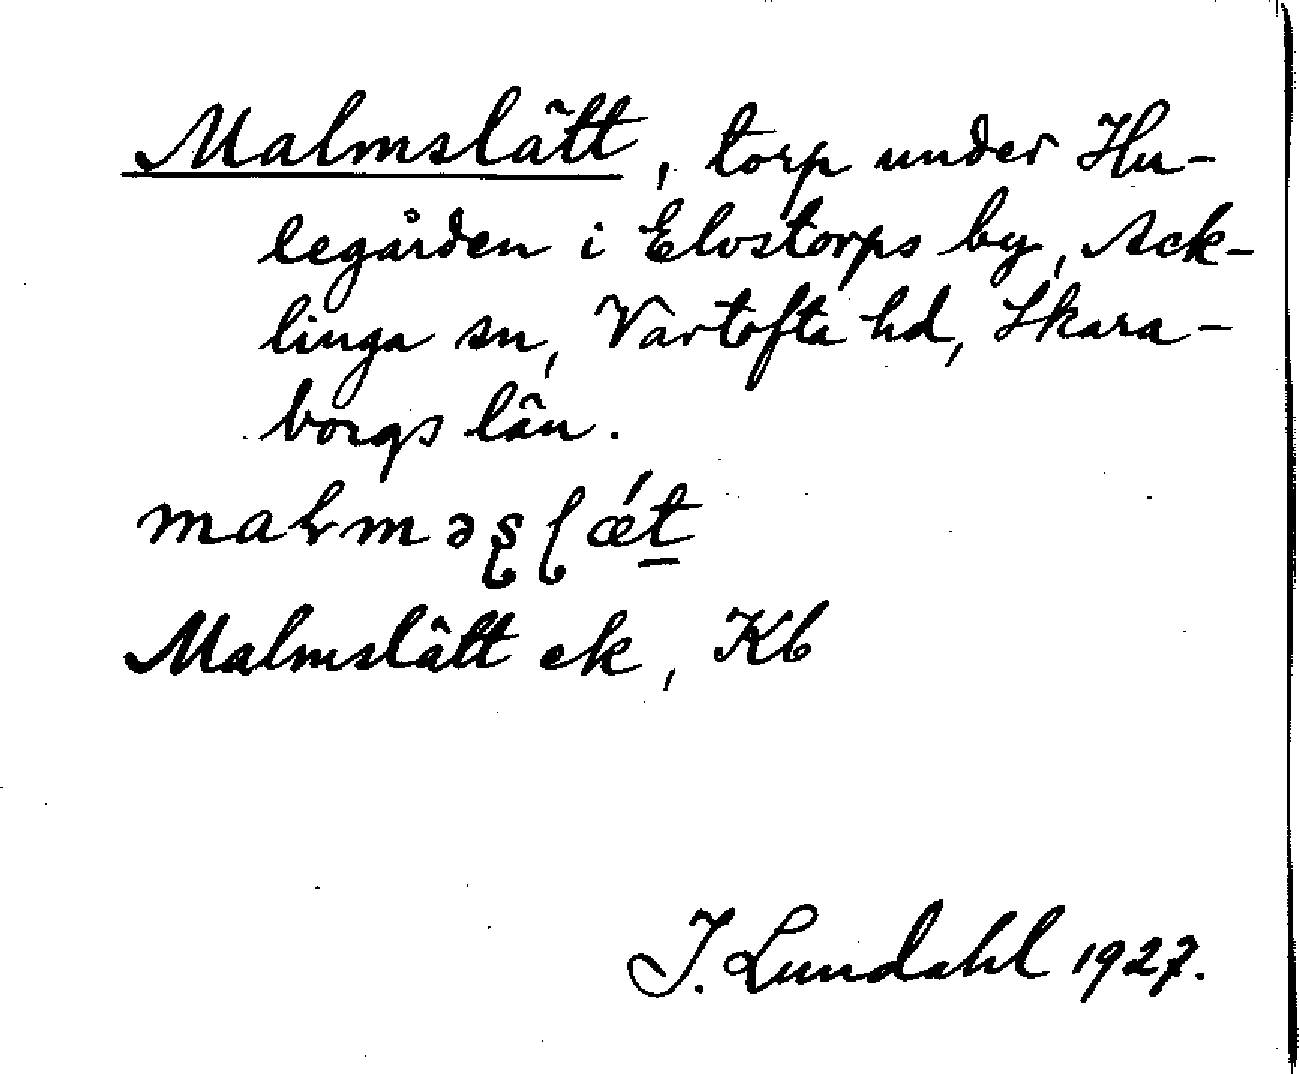 Malmslätt, torp under Hu-
legården i Elvstorps by, Ack-
linga sn, Vartofta hd, Skara-
borgs län.
maɽməʂɭǽt̲
Malmslätt ek, Kb
I. Lundahl 1927.